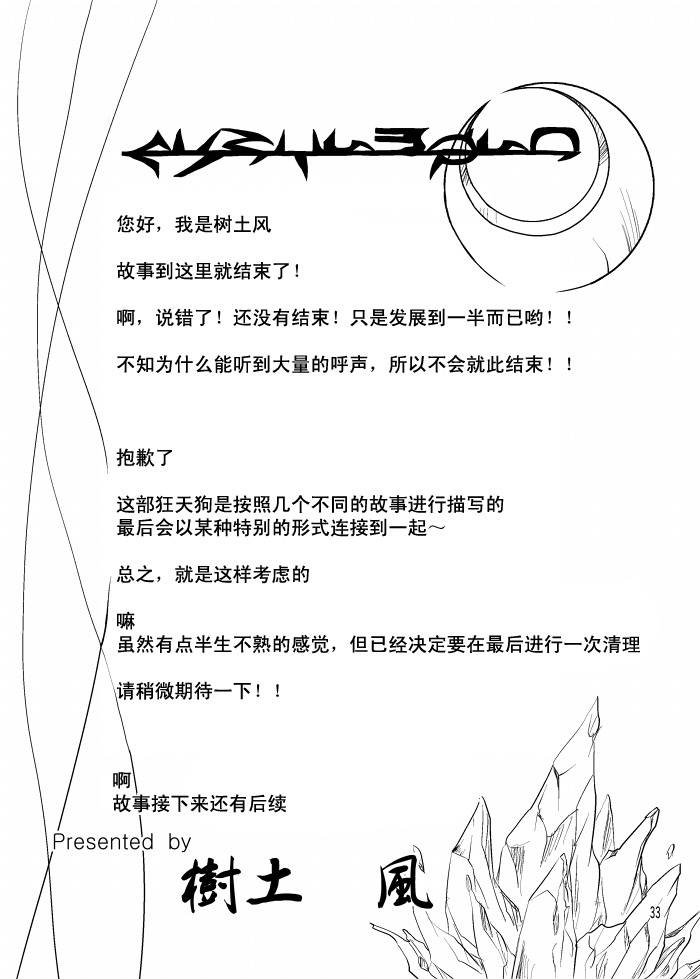 您好，我是树土风
故事到这里就结束了！
啊，说错了！还没有结束！只是发展到一半而已哟！！
不知为什么能听到大量的呼声，所以不会就此结束！！
抱歉了
这部狂天狗是按照几个不同的故事进行描写的
最后会以某种特别的形式连接到一起～
总之，就是这样考虑的
嘛
虽然有点半生不熟的感觉，但已经决定要在最后进行一次清理
请稍微期待一下！！
啊
故事接下来还有后续
Presented by
樹土 風
33